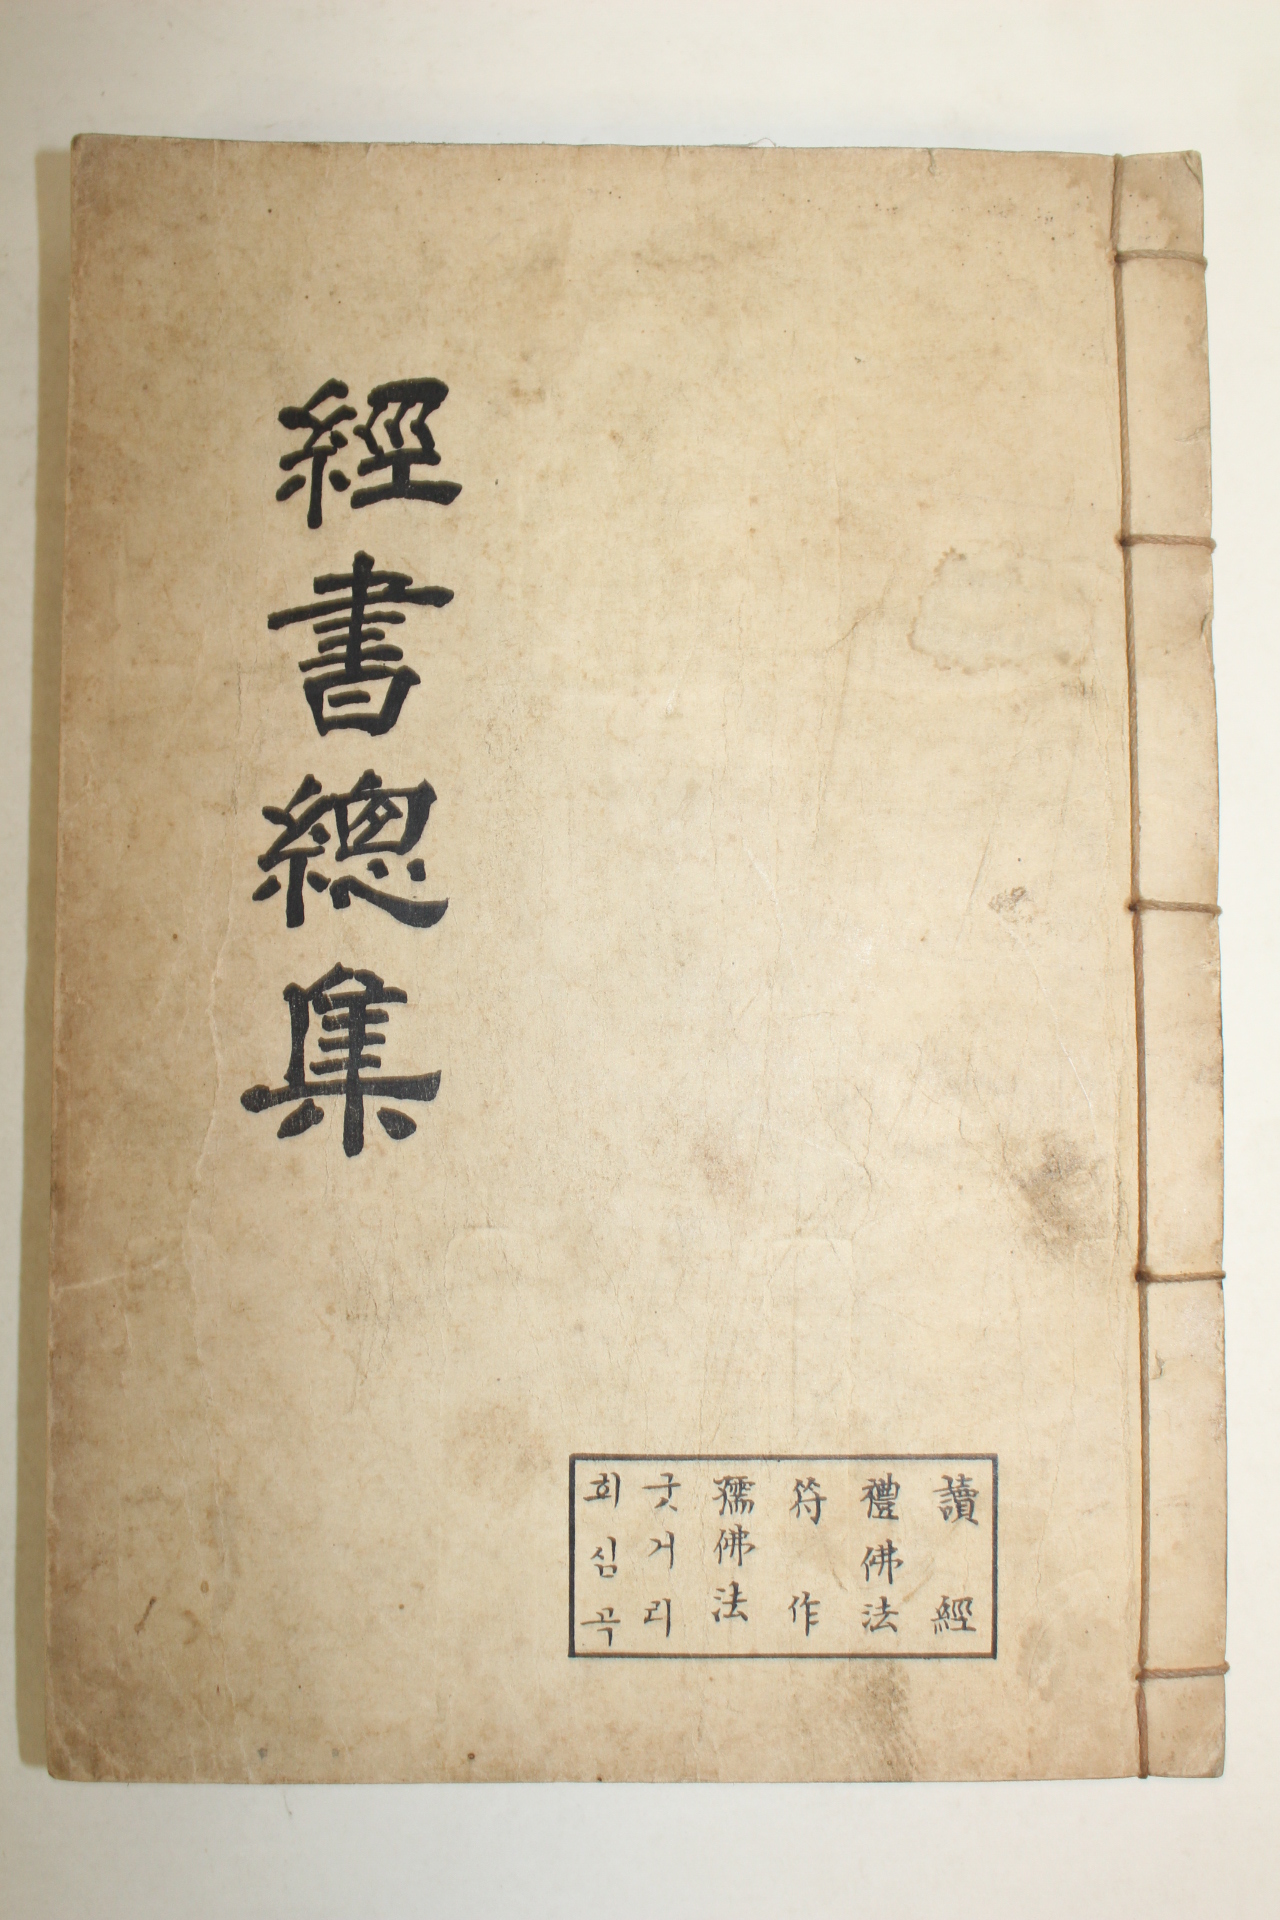 經書總集
讀經
禮佛法
符作
孺佛法
굿거리
회심곡